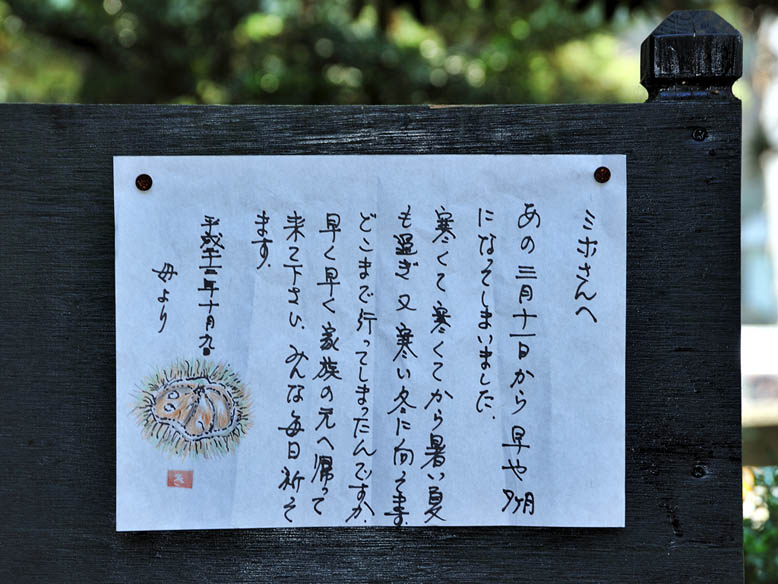 ミホさんへ
あの三月十一日から早や7ヶ月
になってしまいました.
寒くて寒くてから暑い夏
も過ぎ又寒い冬に向えます.
どこまで行ってしまったんですか.
早く早く家族の元へ帰って
来て下さい、みんな毎日祈って
ます.
平成十二年十月九日
母より